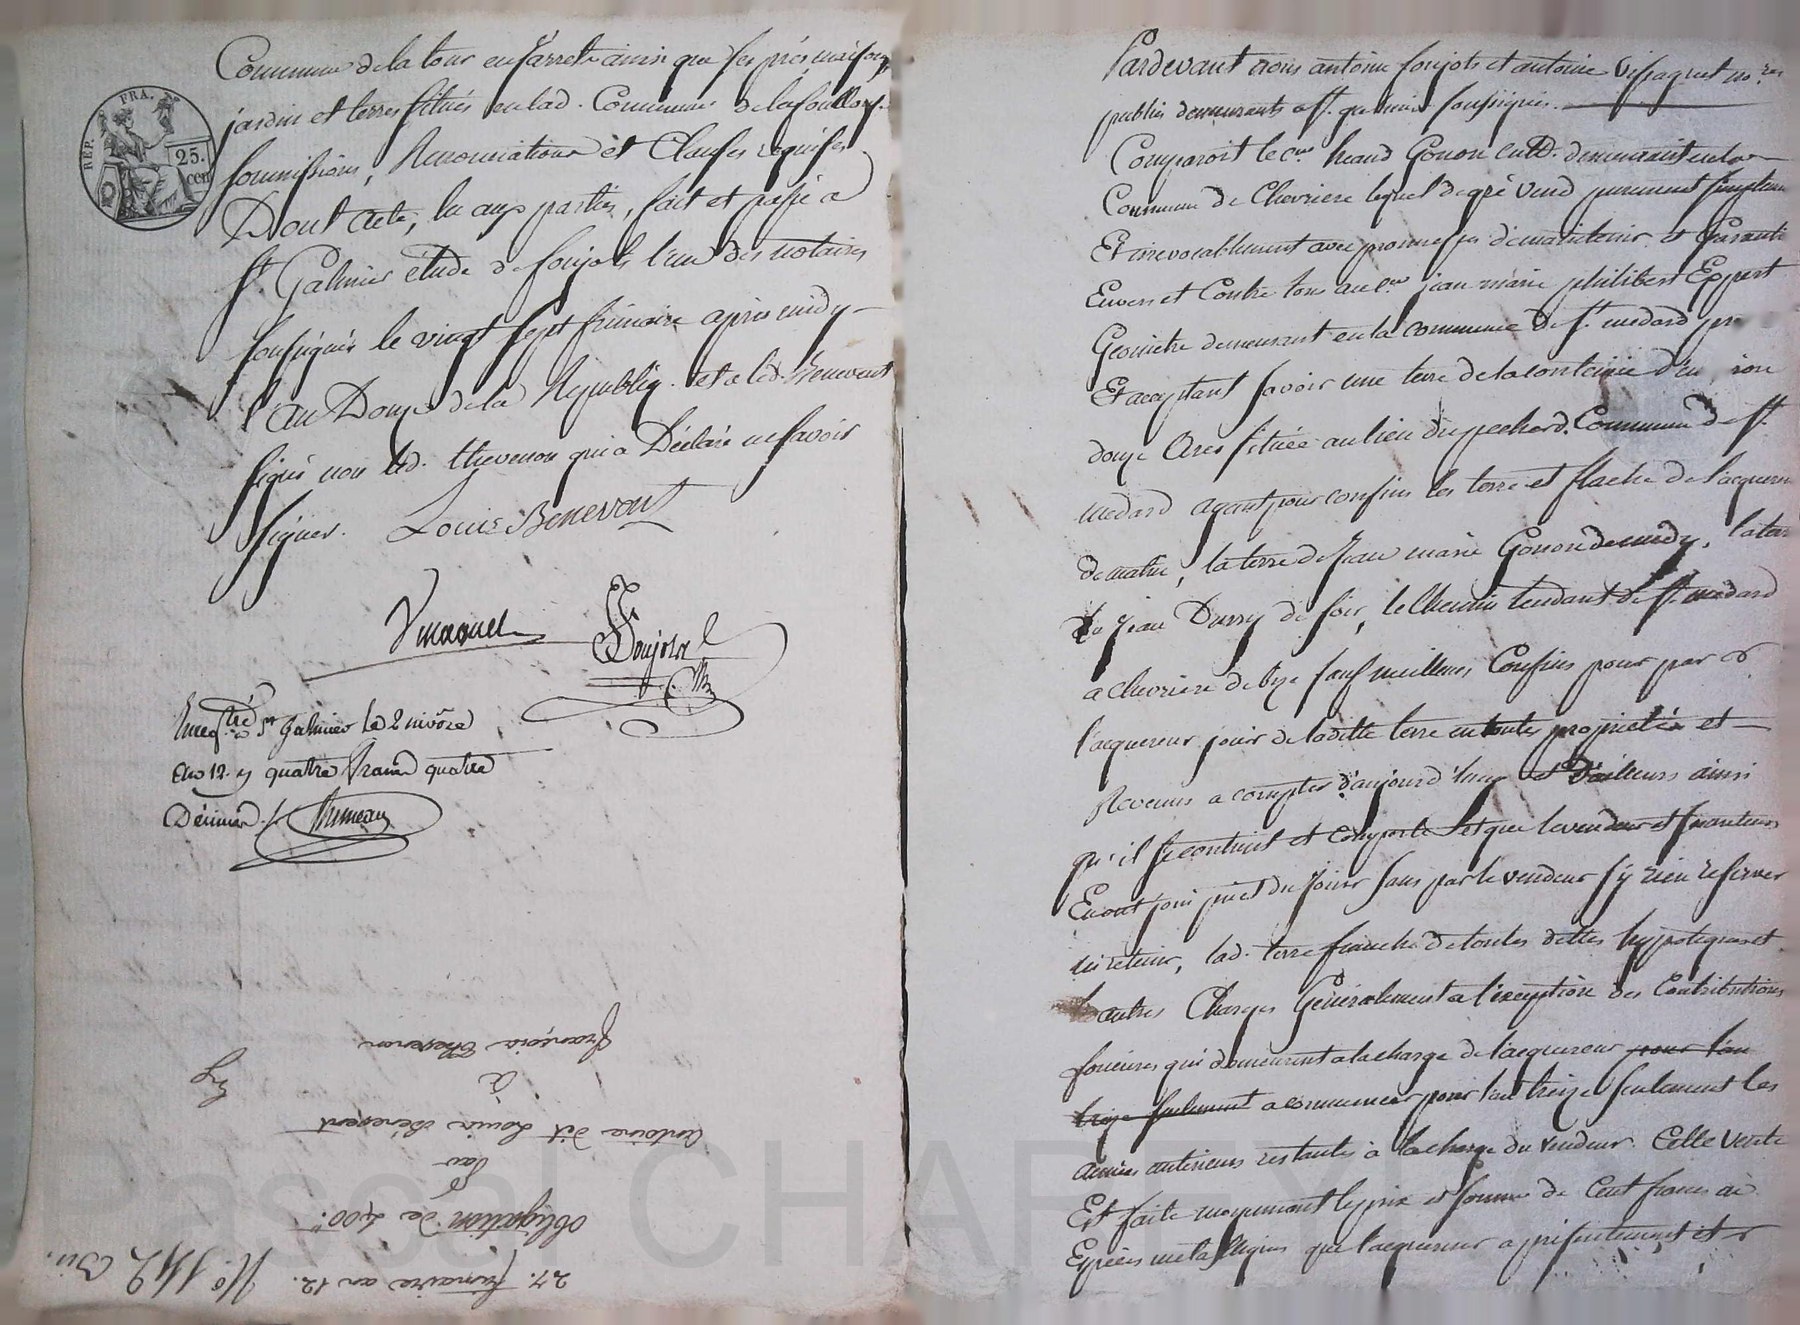 Commune de la tour en Jarrets ainsi que ses prés maison,
jardin et terres situés en lad. Commune de la fouillouse
soumissions, Renonciations et Clauses requises
Dont acte, lu aux parties, fait et passé a
St. Galmier étude de foujols l'un des notaires
soussignés le vingt sept frimaire après midy
l'an Douze de la Républiq. et a led. Benevent
signé non led. thevenon qui a Déclaré ne savoir
signer. Louis Benevent
Foujols
REP. FRA.
25.
cen
Enreg.tré a St Galmier le 2 nivôse
an 12. reçu quatre francs quatre
Décimes
27. frimaire an 12.
Obligation de 400
par
Antoine dit Louis Bénevent
à
François Thevenon
N.º 142
Pardevant nous antoine foujols et antoine no.res
publics demeurants a St. galmier soussignés.
Comparoit le c.en Gonon cult. demeurant en la
Commune de Chevriere lequel de gré vend purement simplement
Et irrevocablement avec promesse de maintenir et Garantir
Envers et Contre tous au c.en jean marie philibert Expert
Géometre demeurant en la commune de St. medard
Et acceptant savoir une terre de la contenüe d'environ
douze Ares située au lieu du pechard. Commune de St.
medard ayant pour confins les terre et flache de l'acquereur
de matin, la terre de Jean marie Gonon de midy, la terre
de Jean Dussy de soir, le Chemin tendant de St. medard
a Chevriere de bize sauf meilleurs Confins pour par
l'acquereur jouir de ladite terre en toutes proprietés et
Revenus a compter d'aujourd'huy et d'ailleurs ainsi
qu'il se contient et comporte et que le vendeur et ses auteurs
En ont joui pu et du jouir sans par le vendeur s'y rien reserver
ni retenir, lad. terre franche de toutes dettes hypoteques et
autres Charges Généralement a l'exception des Contributions
foncieres qui demeurent a la charge de l'acquereur pour l'an
treize seulement a commencer pour l'an treize seulement les
années anterieures restantes à la charge du vendeur. Celle vente
Est faite moyennant le prix et somme de Cent francs
Especes metalliques que l'acquereur a présentement et
Pascal CHAREY